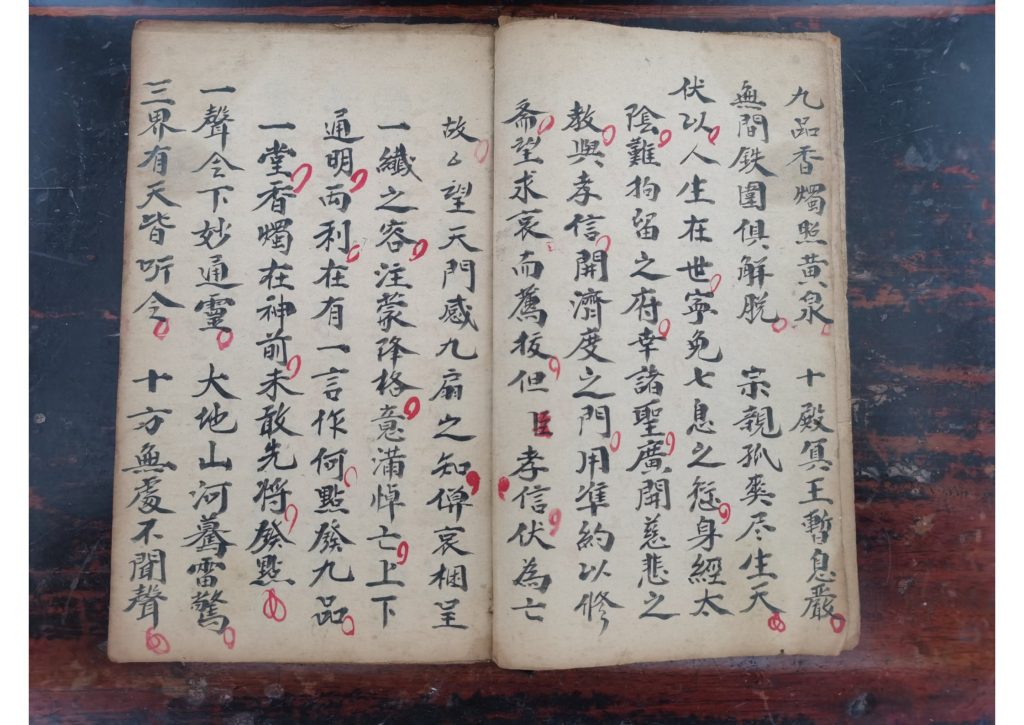 九品香燭照黃泉 十殿冥王暫息嚴
無間鉄圍俱解脱 宗親孤爽尽生天
伏以人生在世寧免七息之愆身經太
陰難拘留之府幸諸聖廣開慈悲之
教與孝信開濟度之門用準約以修
斋望求哀而薦拔但臣孝信伏為亡
故々望天門感九扇之知僤哀梱呈
一纖之容注蒙降格意滿悼亡上下
通明両利在有一言作何點發九品
一堂香燭在神前未敢先将發點
一聲令下妙通靈 大地山河驀雷驚
三界有天皆听令 十方無處不聞聲